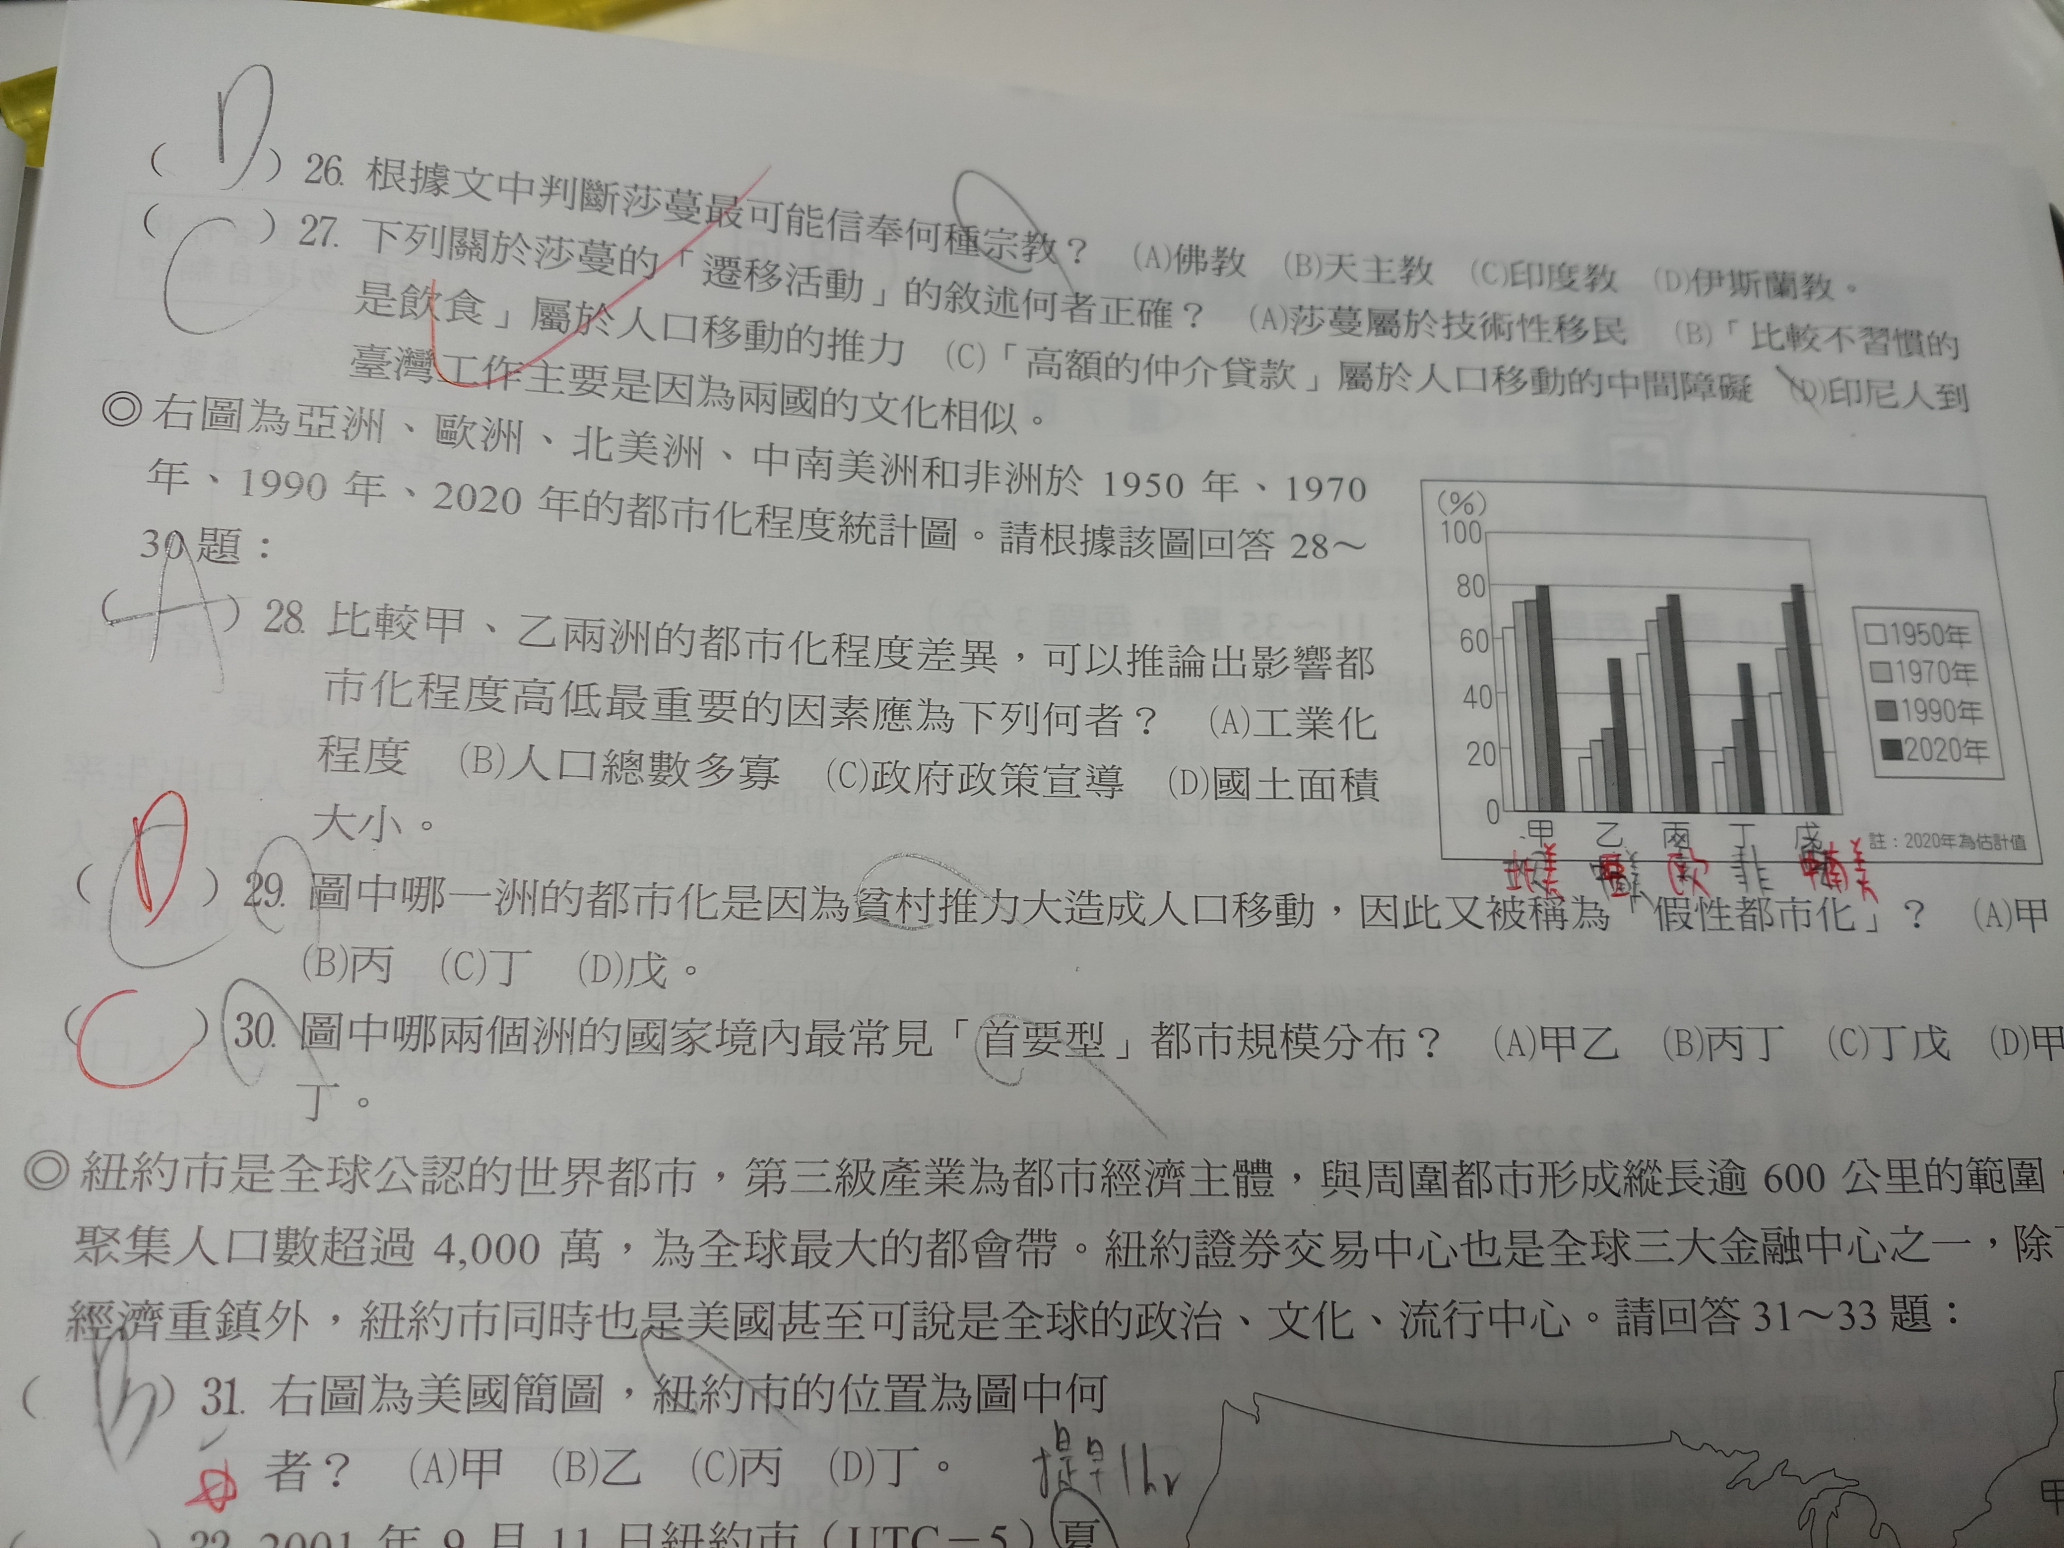 ( D ) 26. 根據文中判斷莎蔓最可能信奉何種宗教？ (A)佛教 (B)天主教 (C)印度教 (D)伊斯蘭教。
( C ) 27. 下列關於莎蔓的「遷移活動」的敘述何者正確？ (A)莎蔓屬於技術性移民 (B)「比較不習慣的
是飲食」屬於人口移動的推力 (C)「高額的仲介貸款」屬於人口移動的中間障礙 (D)印尼人到
臺灣工作主要是因為兩國的文化相似。
◎右圖為亞洲、歐洲、北美洲、中南美洲和非洲於 1950 年、1970
年、1990 年、2020 年的都市化程度統計圖。請根據該圖回答 28～
30 題：
( A ) 28. 比較甲、乙兩洲的都市化程度差異，可以推論出影響都
市化程度高低最重要的因素應為下列何者？ (A)工業化
程度 (B)人口總數多寡 (C)政府政策宣導 (D)國土面積
大小。
(%)
100
80
60
40
20
0
甲 乙 丙 丁 戊
□1950年
1970年
1990年
■2020年
註：2020年為估計值
北美 歐 非 中南美
( D ) 29. 圖中哪一洲的都市化是因為貧村推力大造成人口移動，因此又被稱為「假性都市化」？ (A)甲
(B)丙 (C)丁 (D)戊。
( C ) 30. 圖中哪兩個洲的國家境內最常見「首要型」都市規模分布？ (A)甲乙 (B)丙丁 (C)丁戊 (D)甲
丁。
◎紐約市是全球公認的世界都市，第三級產業為都市經濟主體，與周圍都市形成縱長逾 600 公里的範圍
聚集人口數超過 4,000 萬，為全球最大的都會帶。紐約證券交易中心也是全球三大金融中心之一，除
經濟重鎮外，紐約市同時也是美國甚至可說是全球的政治、文化、流行中心。請回答 31～33 題：
( ) 31. 右圖為美國簡圖，紐約市的位置為圖中何
者？ (A)甲 (B)乙 (C)丙 (D)丁。
提早1hr
甲
( ) 32. 2001 年 9 月 11 日紐約市（UTC－5）夏